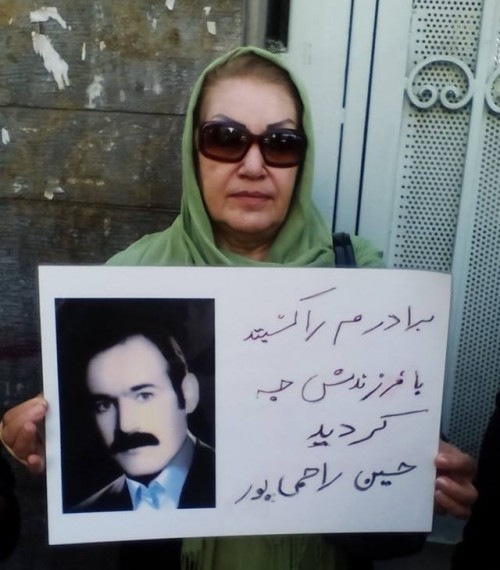 برادرم را کشیتد
با فرزندش چه
کردید
حسین راحمی پور